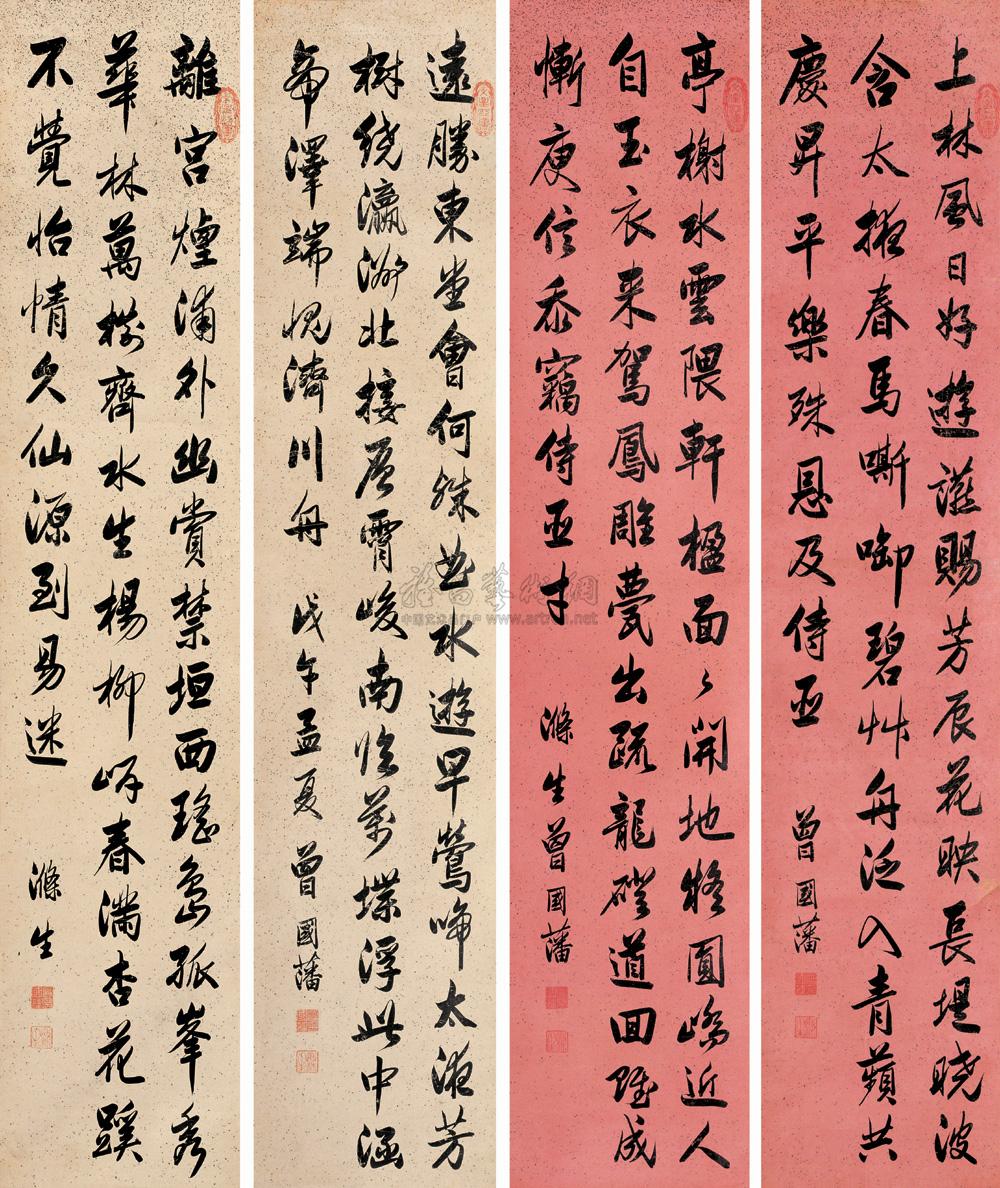 上林風日好遊讌賜芳辰花映長堤曉波
含太液春馬嘶御碧艸舟泛入青蘋共
慶昇平樂殊恩及侍臣
曾國藩
亭榭水雲隈軒楹面々開地將圓嶠近人
自玉衣来駕鳳雕甍出疏龍磴道回雖成
慚庾信忝竊侍臣才
滌生曾國藩
遠勝東堂會何殊曲水遊早鶯啼太液芳
樹繞瀛洲北接層霄峻南臨萬堞浮此中涵
帝澤端愧濟川舟
戊午孟夏
曾國藩
離宮煙浦外幽賞禁垣西瑤島孤峯秀
華林萬樹齊水生楊柳岸春滿杏花蹊
不覺怡情久仙源到易迷
滌生